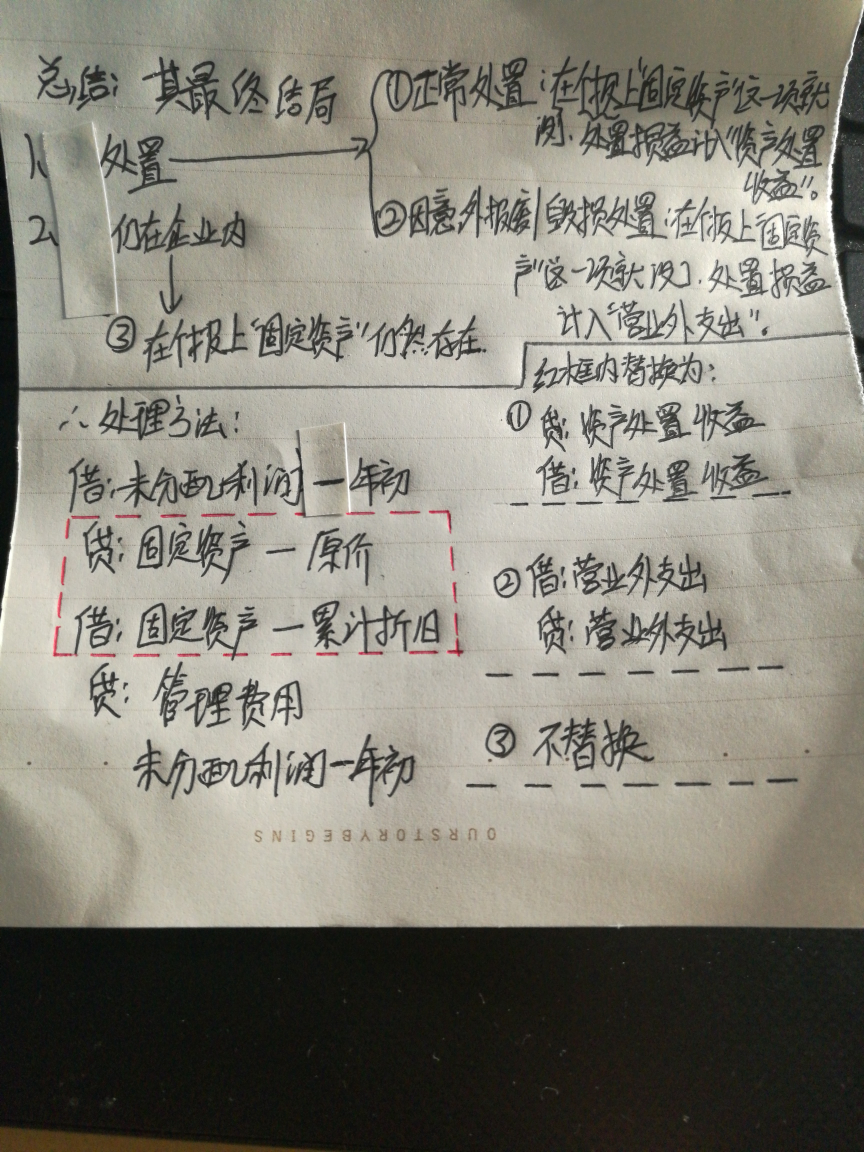 总结：其最终结局
1、 处置
①正常处置：在个报上"固定资产"这一项就
没了，处置损益计入"资产处置
收益"。
2、 仍在企业内
②因意外报废/毁损处置：在个报上"固定资
产"这一项就没了，处置损益
计入"营业外支出"。
③在个报上"固定资产"仍然存在
∴处理方法：
借：未分配利润 — 年初
贷：固定资产 — 原价
借：固定资产 — 累计折旧
贷：管理费用
未分配利润 — 年初
红框内替换为：
①贷：资产处置收益
借：资产处置收益
②借：营业外支出
贷：营业外支出
③不替换
OURSTORYBEGINS